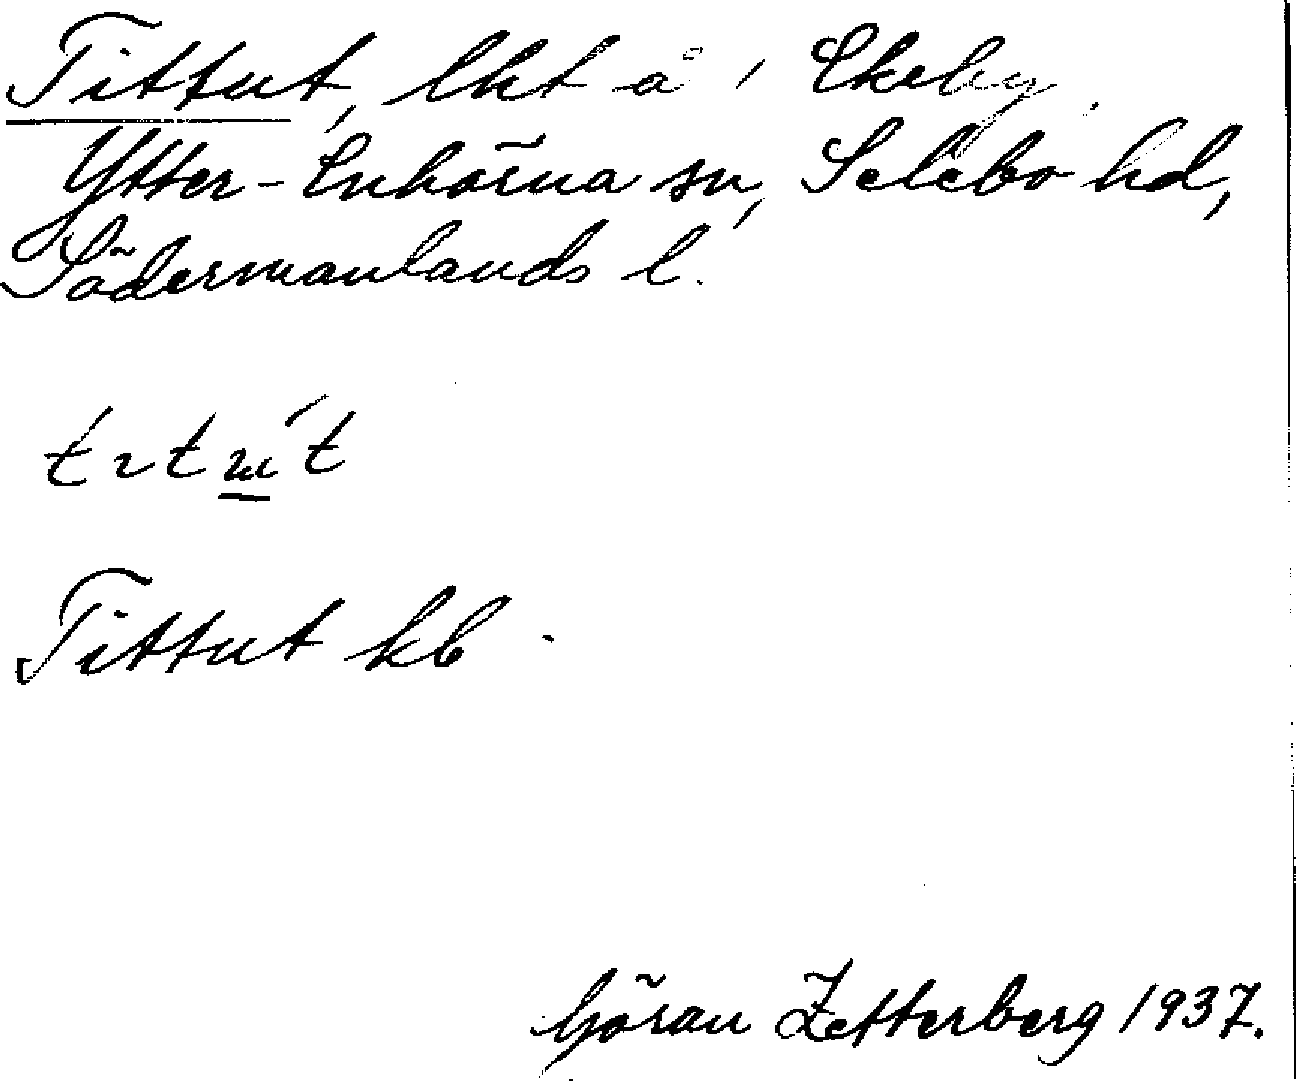 Tittut, lht å 1 Ekeby,
Ytter-Enhörna sn, Selebo hd,
Södermanlands l.
Tittut kb
Göran Zetterberg 1937.